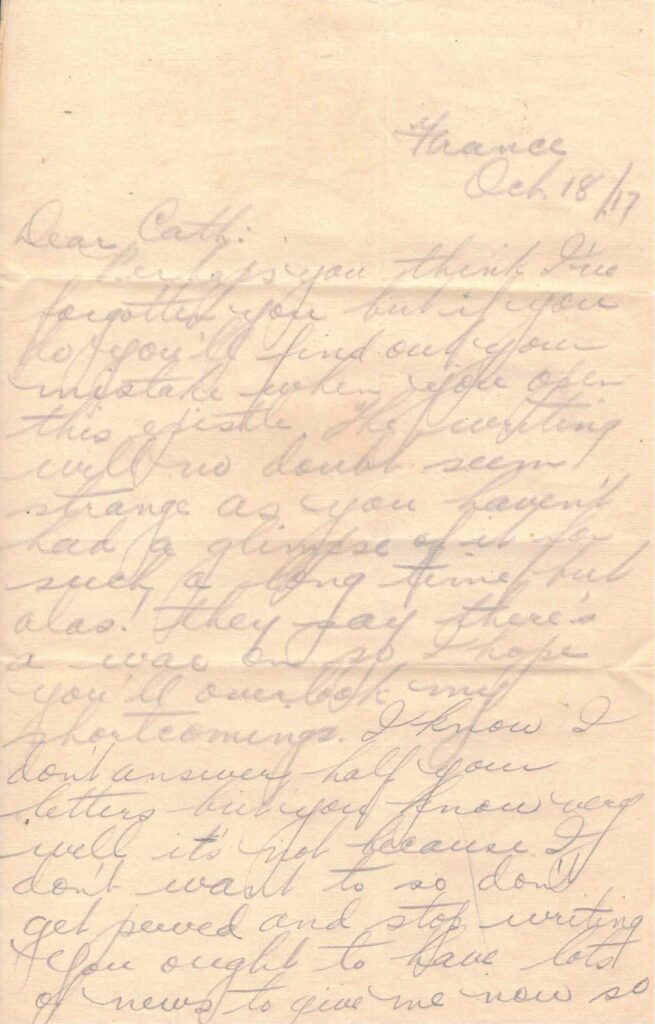 France
Oct. 18/17
Dear Cath:
Perhaps you think I've
forgotten you but if you
do you'll find out your
mistake when you open
this epistle. The writing
will no doubt seem
strange as you haven't
had a glimpse of it for
such a long time, but
alas! They say there's
a war on so I hope
you'll overlook my
shortcomings. I know I
don't answer half your
letters but you know very
well it's not because I
don't want to so don't
get peeved and stop writing
You ought to have lots
of news to give me now so